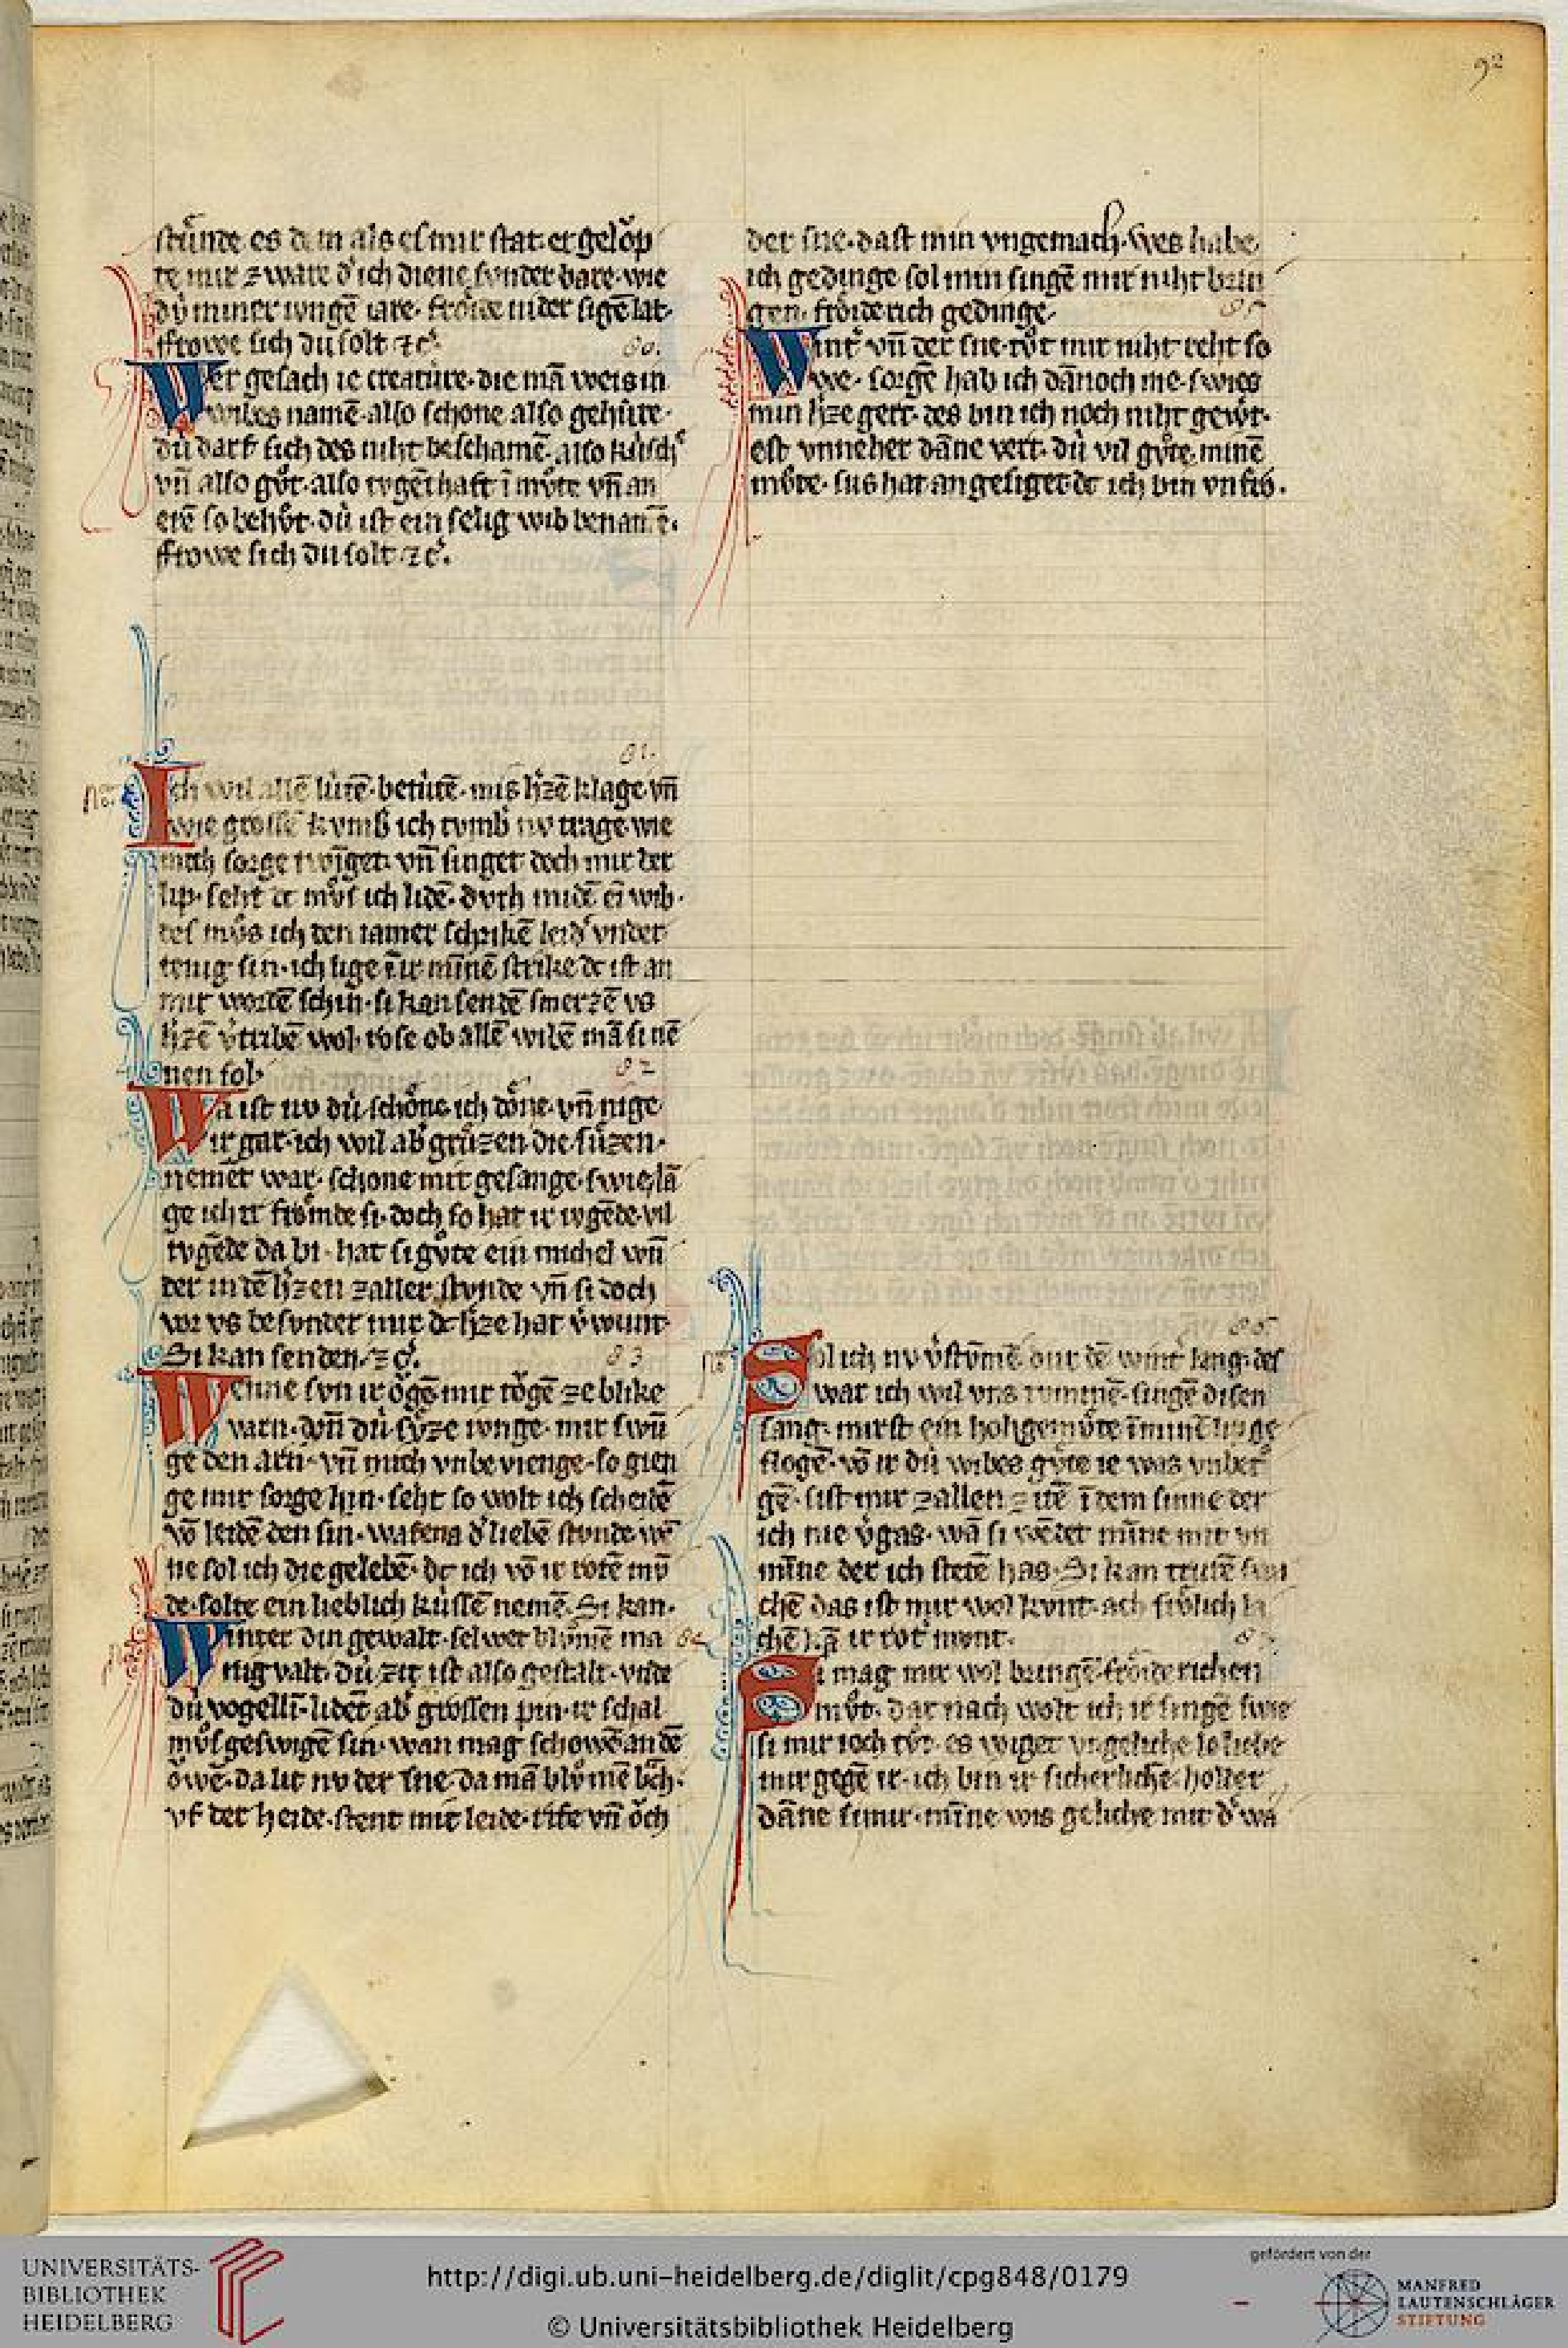 92
stůnde es dem als es mir stat. er gelŏp
te mir zware d̕ ich diene svnder bare. wie
dv̇ miner ivngē iare. frŏide nider sigē lat.
ffrowe sich du solt ⁊c̕.
80.
Wer gesach ie creatúre. die mā weis in
wibes namē. also schone also gehúre.
dú darf sich des niht beschamē. also kúsch̕
vn̄ also gv̊t. also tvgēthaft ī mv̊te vn̄ an
erē so behv̊t. dú ist ein selig wib benant̄.
ffrowe sich du solt ⁊c̕.
81.
Ich wil allē lútē. betútē. mis h̕zē klage vn̄
wie grosse kvmb̕ ich tvmb̕ nv trage. wie
mich sorge twīget. vn̄ singet doch mir der
lip. seht dc mv̊s ich lidē. dvrh midē ei wib.
des mv̊s ich den iamer schrikē leid̕ vnder
tenig sin. ich lige ī ir mīnē strike dc ist an
mir wordē schin. si kan sendē smerzē vs
h̕zē v̕tribē wol. rose ob allē wibē mā si nē
nen sol.
82
Wa ist nv dú schŏne. ich dŏne. vn̄ nige
ir gar. ich wil ab̕ grůzen. die sůzen.
nemēt war. schone mit gesange. swie lā
ge ich ir frŏmde si. doch so hat ir ivgēde. vil
tvgēde da bi. hat si gv̊te ein michel wn̄
der in dē h̕zen zaller stvnde vn̄ si doch
vor vs besvnder mir dc h̕ze hat v̕wunt.
Si kan senden. ⁊c̕.
83
Wenne svn ir ŏgē mir tŏgē ze blike
varn. vn̄ dú sv̊ze ivnge. mir swn̄
ge den arn. vn̄ mich vnbevienge. so gien
ge mir sorge hin. seht so wolt ich scheidē
vō leidē den sin. wafena d̕ liebē stvnde wē
ne sol ich die gelebē. dc ich vō ir rotē mv̄
de. solte ein lieblich kússē nemē. Si kan.
84
Winter din gewalt. selwet blv̊mē ma
nigvalt. dú zit ist also gestalt. vnde
dú vogellī. lidet ab̕ grossen pin. ir schal
mv̊s geswigē sin. wan mag schowē an dē
ŏwē. da lit nv der sne. da mā blv̊mē b̕ch.
vf der heide. stent mit leide. rife vn̄ ŏch
der sne. dast min vngemach. wes habe
ich gedinge. sol min singē mir niht brin
gen. frŏiderich gedinge.
85
Wint̕ vn̄ der sne. tv̊t mir niht reht so
we. sorgē hab ich dānoch me. swies
min h̕ze gert. des bin ich noch niht gew̕t.
est vnneher dāne vert. dú vil gv̊te. minē
mv̊te. sus hat angesiget dc ich bin vnfro.
86.
Sol ich nv v̕stvmē dur dē wint̕ lang. des
war ich wil vns rummē. singē disen
sang. mirst ein hohgemv̊te ī min h̕ze ge
flogē. vō ir dú wibes gv̊te ie was vnbet̕
gē. sist mir zallen zitē ī dem sinne der
ich nie v̕gas. wā si wēdet mīne mit vn
mīne der ich stetē has. Si kan trutē swa
chē das ist mir wol kvnt. ach frŏlich la
chē kā ir rot̕ munt.
87
Si mag mir wol bringē frŏiderichen
mv̊t. dar nach wolt ich ir singē swie
si mir ioch tv̊t. es wiget vngeliche so liebe
mir gegē ir. ich bin ir sicherlichē. holder
dāne si mir. mīne wis geliche mit d̕ wa
UNIVERSITÄTS-
BIBLIOTHEK
HEIDELBERG
http://digi.ub.uni-heidelberg.de/diglit/cpg848/0179
© Universitätsbibliothek Heidelberg
gefördert von der
MANFRED
LAUTENSCHLÄGER
STIFTUNG